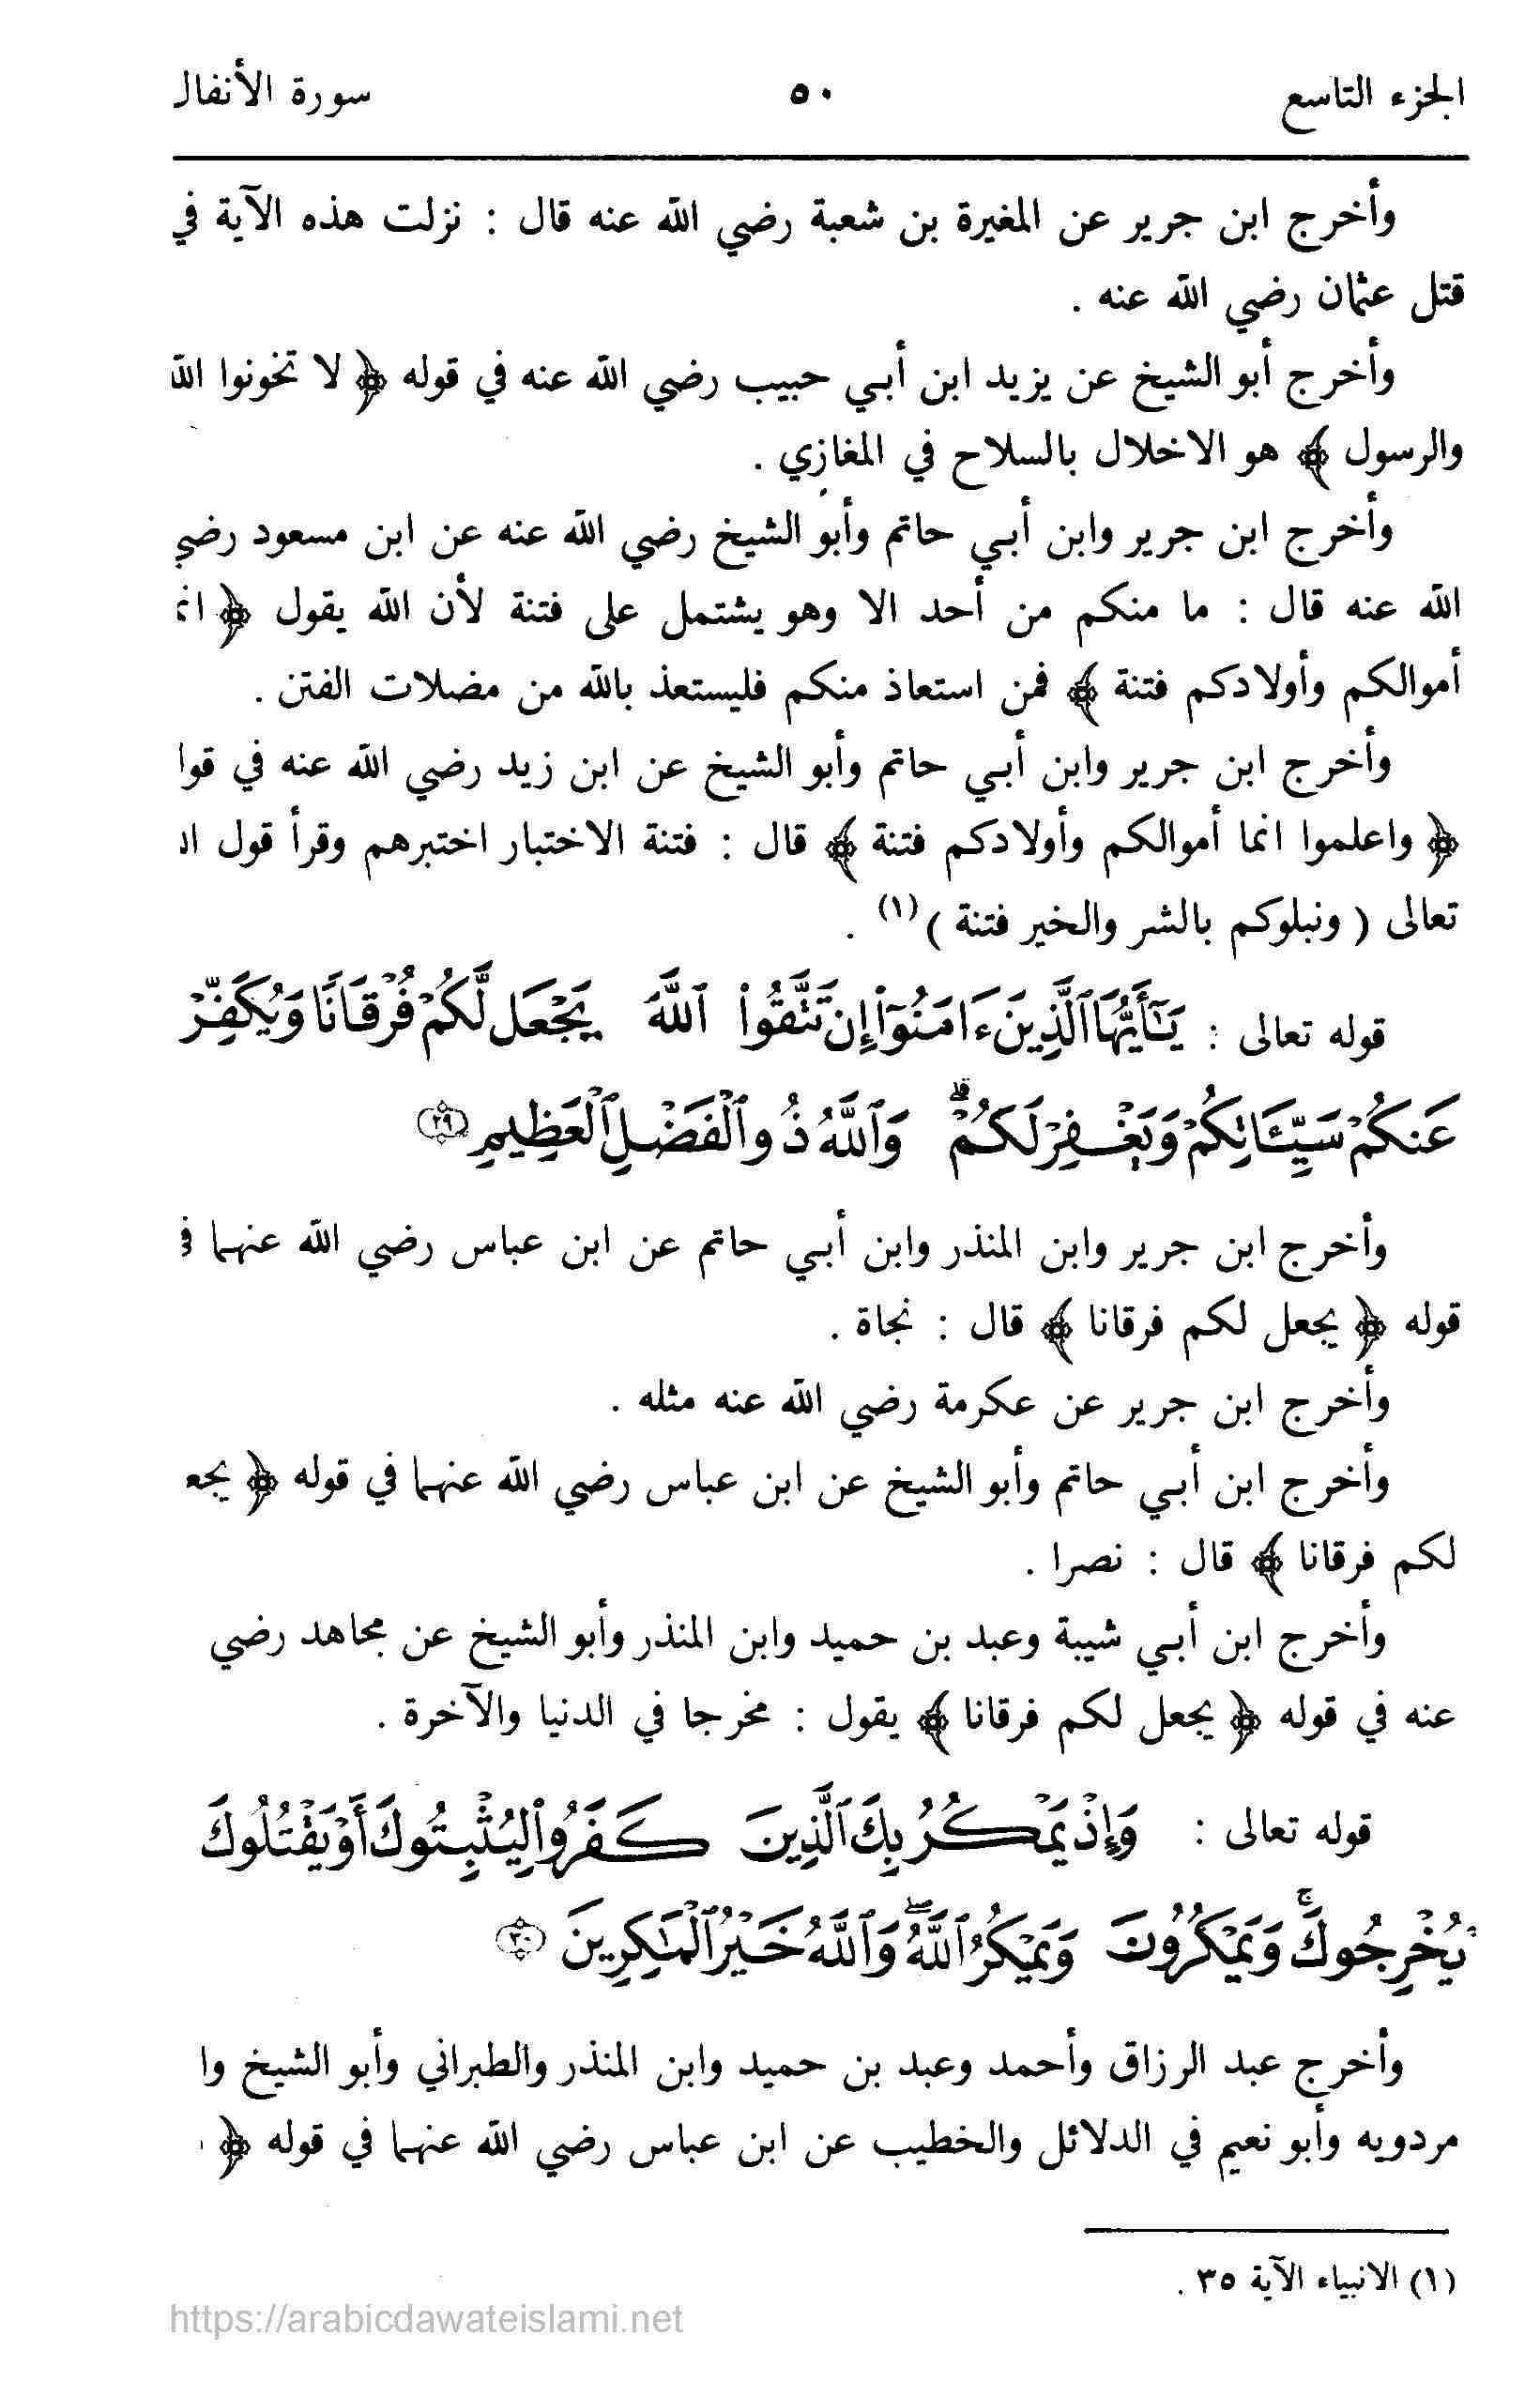 الجزء التاسع ٥٠ سورة الأنفال
وأخرج ابن جرير عن المغيرة بن شعبة رضي الله عنه قال : نزلت هذه الآية في
قتل عثمان رضي الله عنه .
وأخرج أبو الشيخ عن يزيد ابن أبي حبيب رضي الله عنه في قوله ﴿ لا تخونوا الله
والرسول ﴾ هو الاخلال بالسلاح في المغازي .
وأخرج ابن جرير وابن أبي حاتم وأبو الشيخ رضي الله عنه عن ابن مسعود رضي
الله عنه قال : ما منكم من أحد الا وهو يشتمل على فتنة لأن الله يقول ﴿
أموالكم وأولادكم فتنة ﴾ فمن استعاذ منكم فليستعذ بالله من مضلات الفتن .
وأخرج ابن جرير وابن أبي حاتم وأبو الشيخ عن ابن زيد رضي الله عنه في
﴿ واعلموا انما أموالكم وأولادكم فتنة ﴾ قال : فتنة الاختبار اختبرهم وقرأ قول
تعالى ( ونبلوكم بالشر والخير فتنة ) (١) .
قوله تعالى : يَٰٓأَيُّهَا ٱلَّذِينَ ءَامَنُوٓا۟ إِن تَتَّقُوا۟ ٱللَّهَ يَجْعَل لَّكُمْ فُرْقَانًا وَيُكَفِّرْ
عَنكُمْ سَيِّـَٔاتِكُمْ وَيَغْفِرْ لَكُمْ ۗ وَٱللَّهُ ذُو ٱلْفَضْلِ ٱلْعَظِيمِ ٢٩
وأخرج ابن جرير وابن المنذر وابن أبي حاتم عن ابن عباس رضي الله عنهما في
قوله ﴿ يجعل لكم فرقانا ﴾ قال : نجاة .
وأخرج ابن جرير عن عكرمة رضي الله عنه مثله .
وأخرج ابن أبي حاتم وأبو الشيخ عن ابن عباس رضي الله عنهما في قوله ﴿ يجع
لكم فرقانا ﴾ قال : نصرا .
وأخرج ابن أبي شيبة وعبد بن حميد وابن المنذر وأبو الشيخ عن مجاهد رضي
عنه في قوله ﴿ يجعل لكم فرقانا ﴾ يقول : مخرجا في الدنيا والآخرة .
قوله تعالى : وَإِذْ يَمْكُرُ بِكَ ٱلَّذِينَ كَفَرُوا۟ لِيُثْبِتُوكَ أَوْ يَقْتُلُوكَ
يُخْرِجُوكَ ۚ وَيَمْكُرُونَ وَيَمْكُرُ ٱللَّهُ ۖ وَٱللَّهُ خَيْرُ ٱلْمَٰكِرِينَ ٣٠
وأخرج عبد الرزاق وأحمد وعبد بن حميد وابن المنذر والطبراني وأبو الشيخ وا
مردويه وأبو نعيم في الدلائل والخطيب عن ابن عباس رضي الله عنهما في قوله ﴿
(١) الانبياء الآية ٣٥ .
https://arabicdawateislami.net